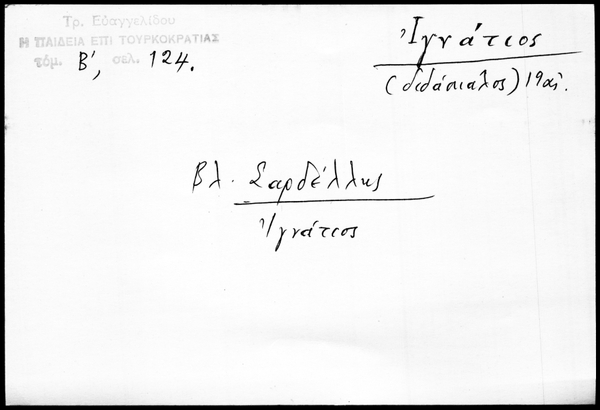 Τρ. Εὐαγγελίδου
Η ΠΑΙΔΕΙΑ ΕΠΙ ΤΟΥΡΚΟΚΡΑΤΙΑΣ
τόμ. Β', σελ. 124.
Ἰγνάτιος
(διδάσκαλος) 19 αἰ.
Βλ. Σαρδέλλης
Ἰγνάτιος